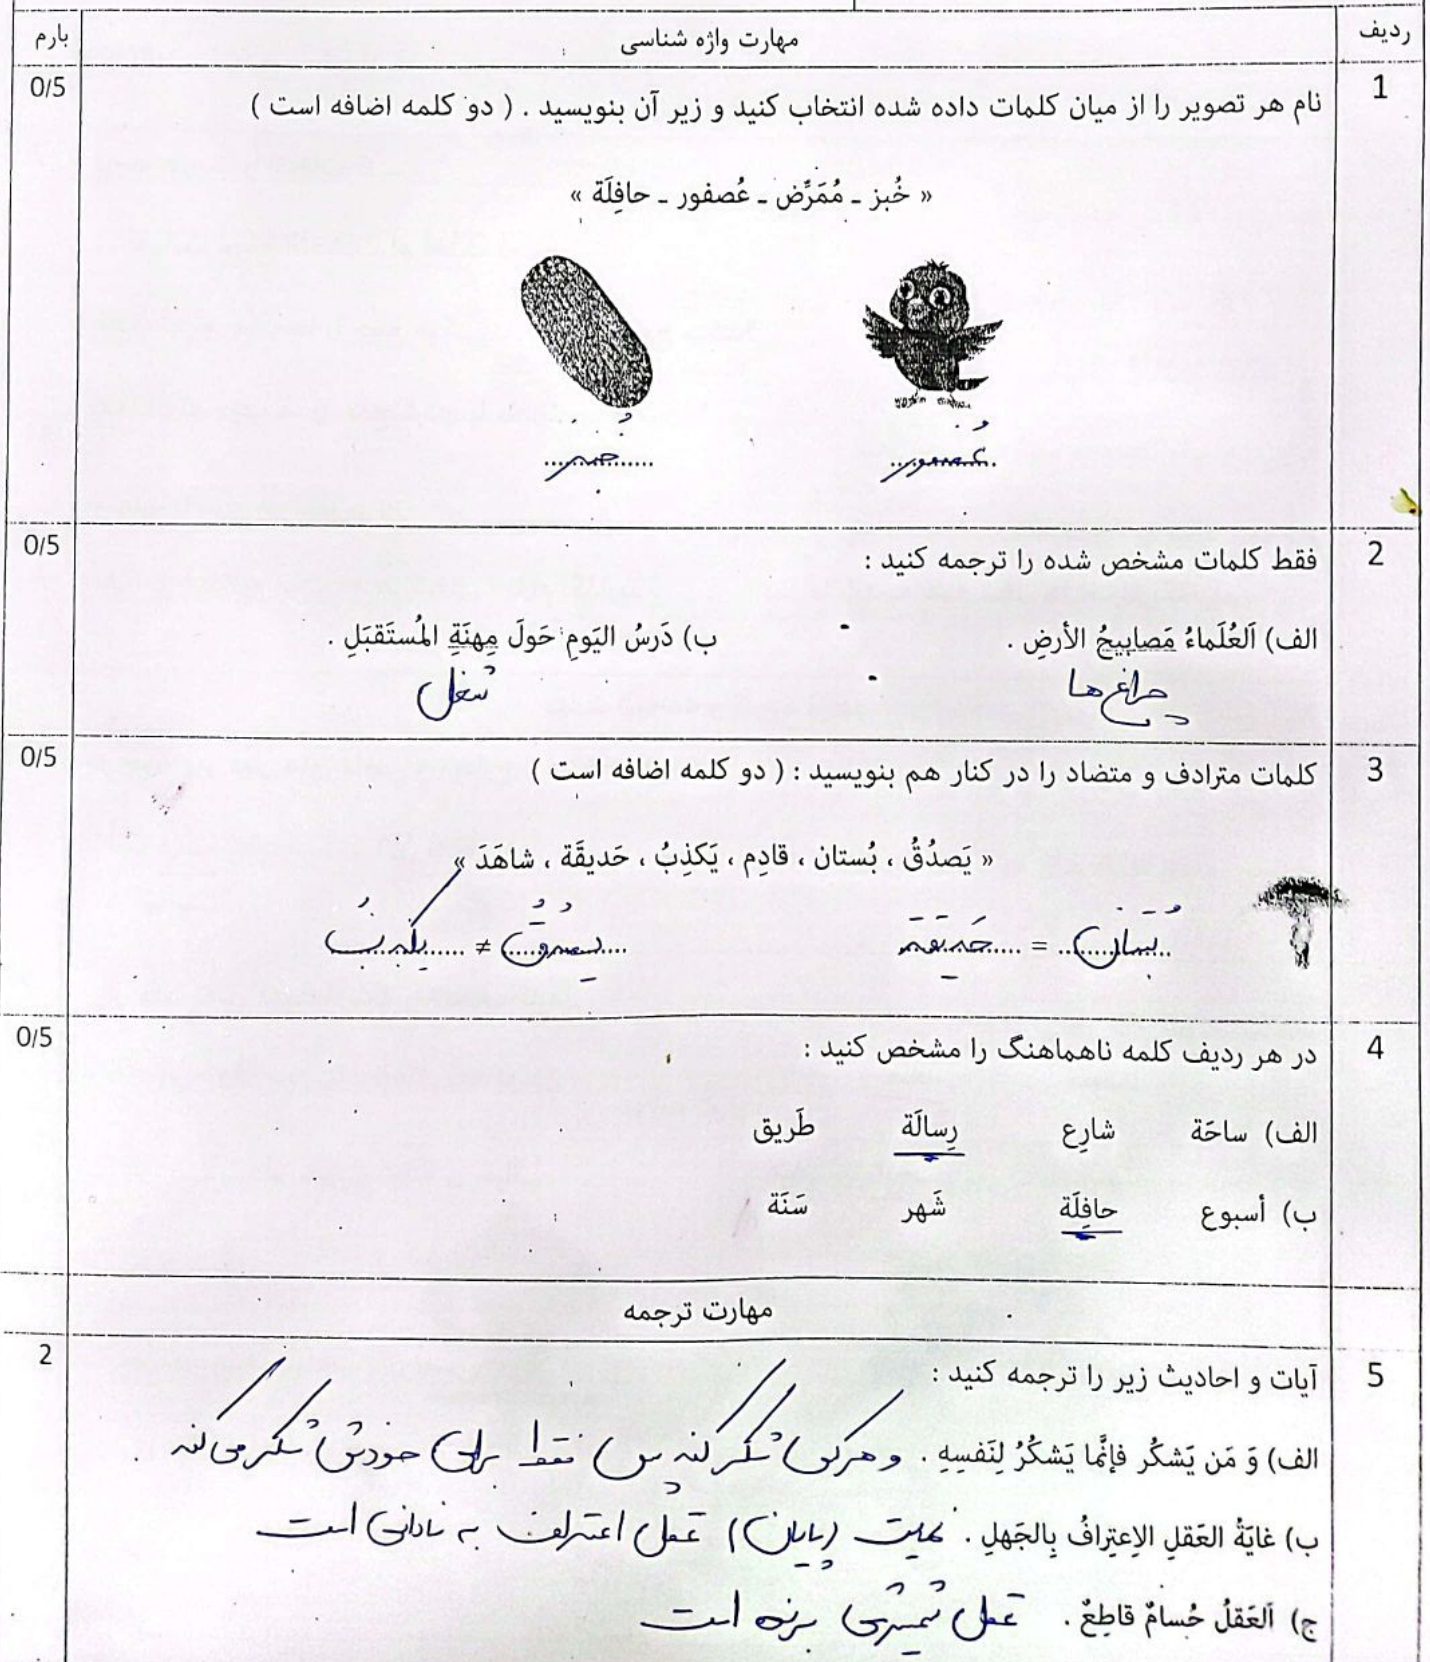 ردیف مهارت واژه شناسی بارم
1 نام هر تصویر را از میان کلمات داده شده انتخاب کنید و زیر آن بنویسید . ( دو کلمه اضافه است ) 0/5
« خُبز ـ مُمَرِّض ـ عُصفور ـ حافِلَة »
عُصفور خُبز
2 فقط کلمات مشخص شده را ترجمه کنید : 0/5
الف) اَلعُلَماءُ مَصابیحُ الأرضِ . ب) دَرسُ الیَومِ حَولَ مِهنَةِ المُستَقبَلِ .
چراغ ها شغل
3 کلمات مترادف و متضاد را در کنار هم بنویسید : ( دو کلمه اضافه است ) 0/5
« یَصدُقُ ، بُستان ، قادِم ، یَکذِبُ ، حَدیقَة ، شاهَدَ »
بُستان = حَدیقة یَصدُقُ ≠ یکذبُ
4 در هر ردیف کلمه ناهماهنگ را مشخص کنید : 0/5
الف) ساحَة شارِع رِسالَة طَریق
ب) أسبوع حافِلَة شَهر سَنَة
مهارت ترجمه
5 آیات و احادیث زیر را ترجمه کنید : 2
الف) وَ مَن یَشکُر فإنَّما یَشکُرُ لِنَفسِهِ . و هرکس شکر کند پس فقط برای خودش شکر می کند .
ب) غایَةُ العَقلِ الاِعتِرافُ بِالجَهلِ . نهایت (پایان) عقل اعتراف به نادانی است
ج) اَلعَقلُ حُسامٌ قاطِعٌ . عقل شمشیری برنده است